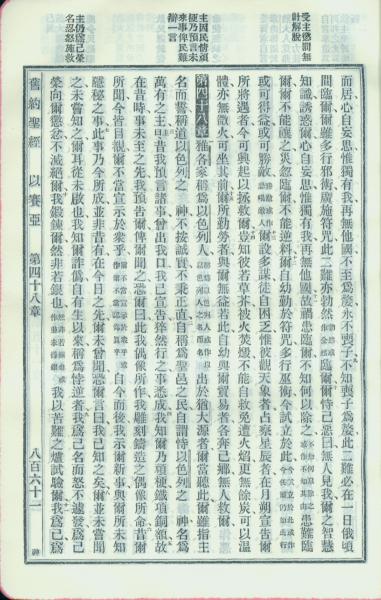 受主懲罰無
計解脫
主因民情頑
梗乃預言未
來事俾民難
辯一言
主仍爲己榮
名忍怒施救
而居心自妄思惟獨有我再無他國不至爲嫠永不喪子不知喪子爲嫠此二難必在一日俄頃
間臨爾爾雖多行邪術廣施符咒此二難亦勃然臨爾爾恃己惡曰無人見我爾之智慧
知識誘惑爾心自妄思惟獨有我再無他國故禍患臨爾不知何以除之患難臨
爾爾不能禳之災忽臨爾爾不能逆料爾自幼勤於符咒多行巫術今試立於此
或可得益或可勝敵爾設多謀徒自困乏惟彼觀天象者占察星辰者在月朔宣告爾
所將遇者今可興起以拯救爾豈知彼若草芥被火焚燬不能自救免遭火焰更無餘炭可以溫
體亦無微火可坐其前爾所勤勞者與爾無益若此自幼與爾貿易者各奔己鄉無人救爾
第四十八章 雅各家稱爲以色列人出於猶大源者當聽此爾雖指主
名而誓稱道以色列之 神不按誠實不秉正直自稱爲聖邑之民自謂恃以色列之 神名爲
萬有之主曰昔我預言諸事曾出我口我已宣告猝然行之事悉成我知爾乃頑梗鐵項銅額故
在昔時事未至之先我預告爾俾爾聞之恐爾曰此我偶像所作我雕刻鑄造之偶像所命昔爾
所聞今皆目覩爾不當宣示於衆乎自今而後我示爾新事與爾所未知
隱秘之事此事乃今所成並非昔有在今日之先爾未曾聞恐爾言曰我已知之矣爾並未嘗聞
之未嘗知之爾耳從未啟也我知爾行詭僞自有生以來稱爲悖逆者我爲己之名而怒不遽發爲己
榮向爾忿忿不滅絕爾我鍛鍊爾然非若銀也我以苦難之爐試驗爾我爲己爲
舊約聖經 以賽亞 第四十八章 八百六十一